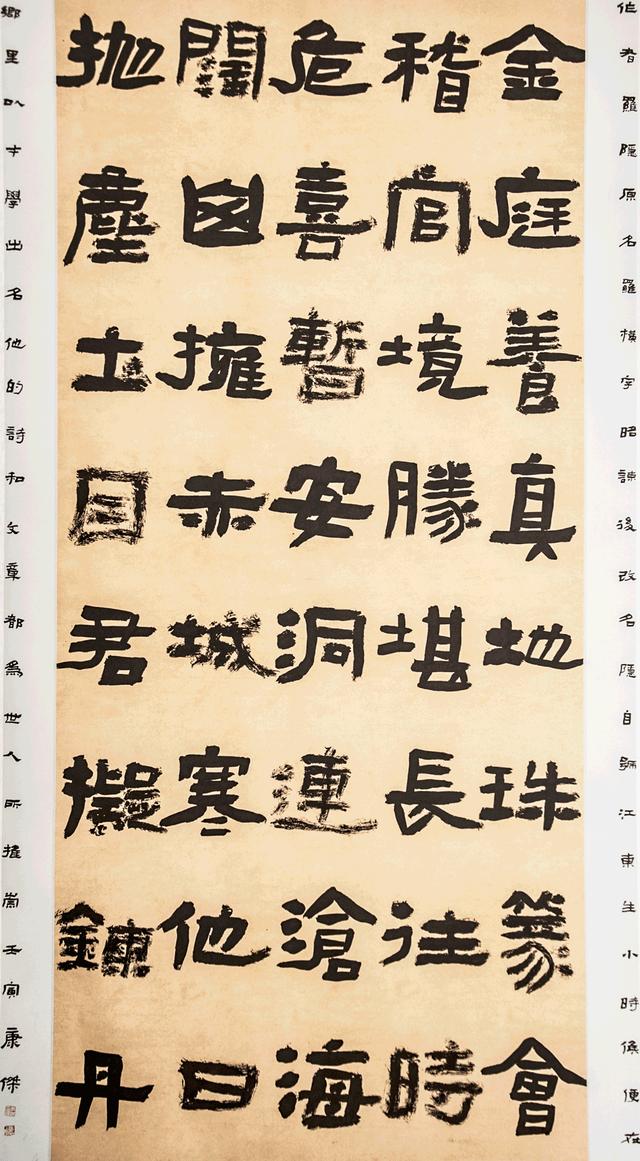 作者羅隱原名羅橫字昭諫後改名隱自號江東生小時候便在
金庭養真地珠篆會
稽官境勝堪長往時
危喜暫安洞連滄海
闊擁赤城寒他日
拋塵土因君擬鍊丹
鄉里以才學出名他的詩和文章都為世人所推崇壬寅康傑